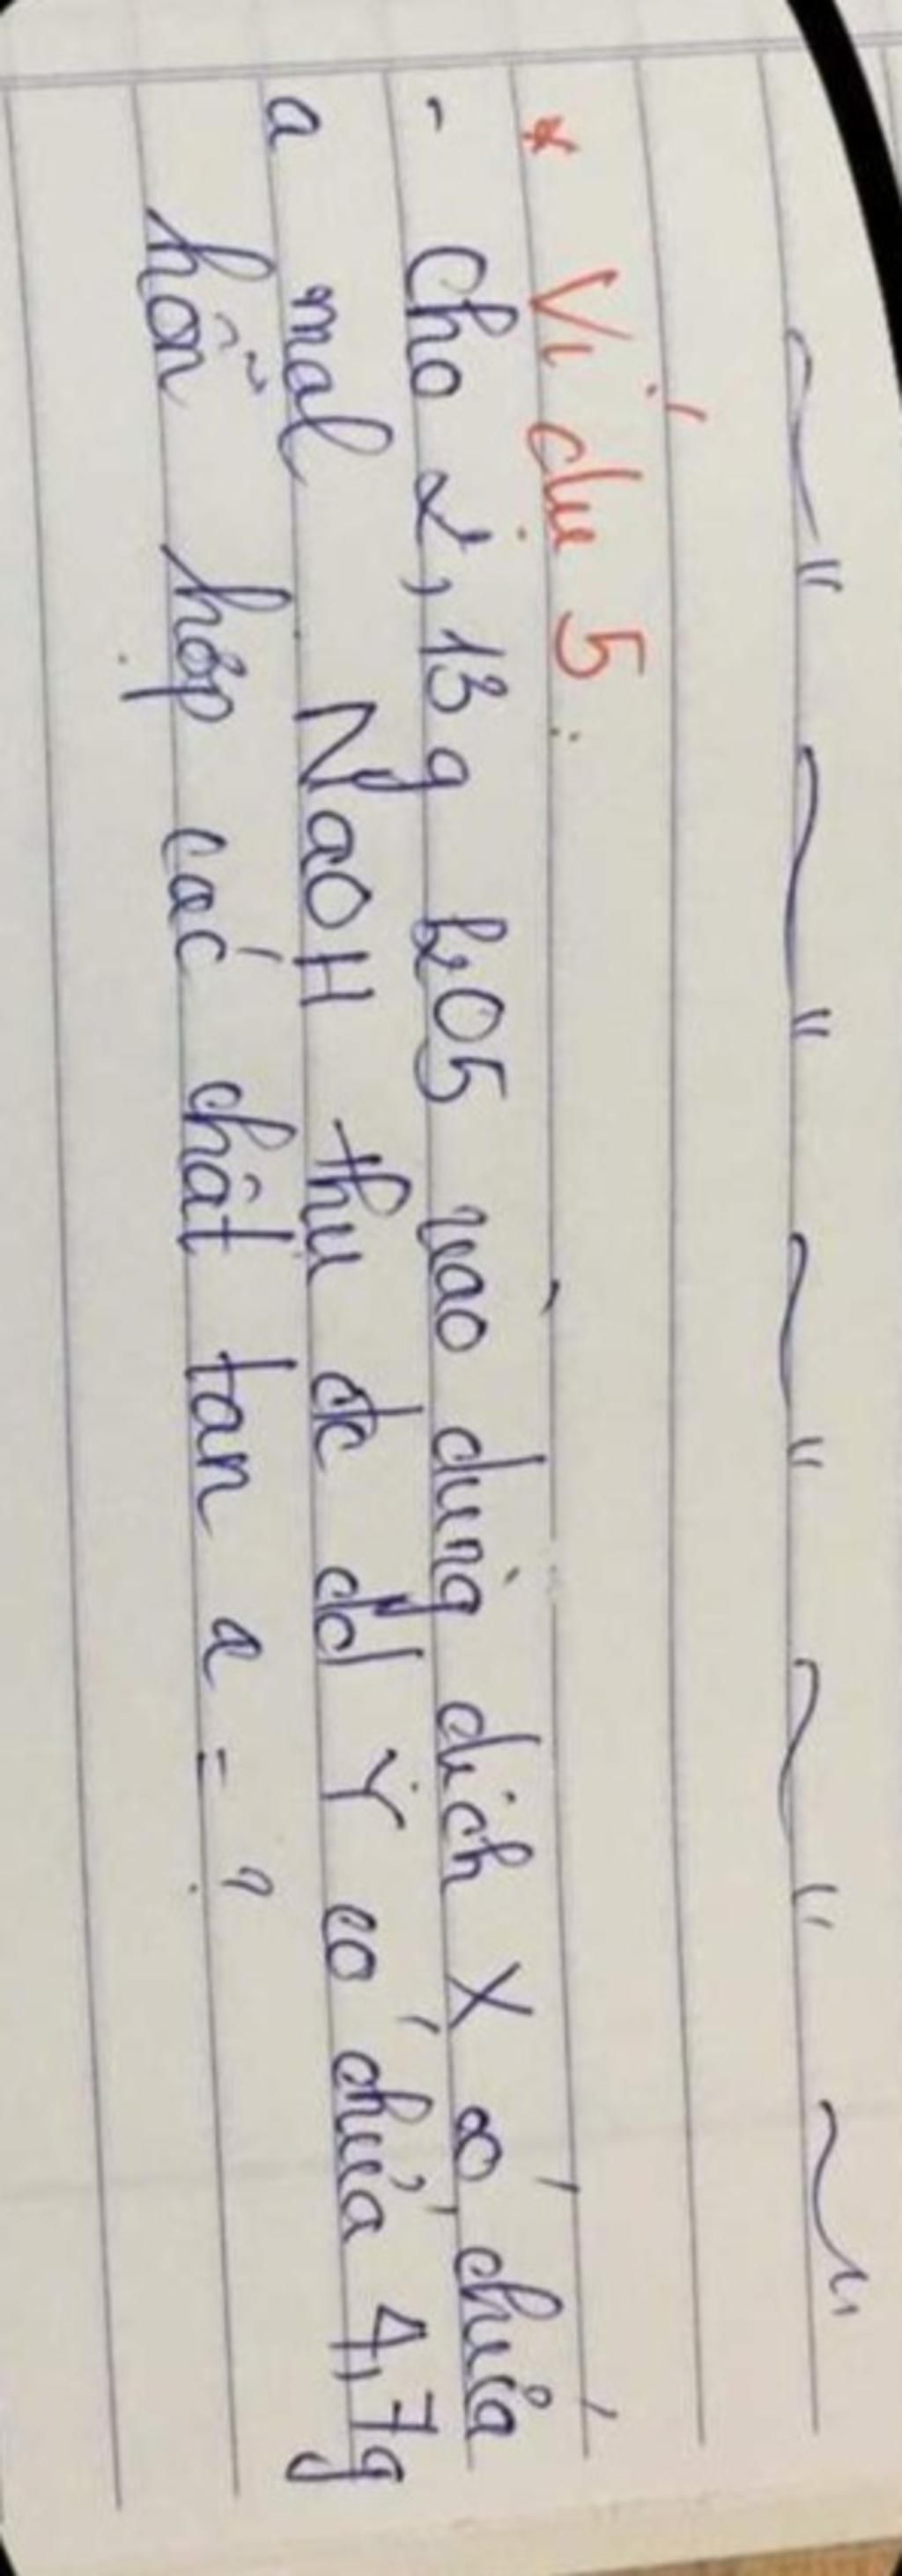 * Ví dụ 5:
- Cho 2,13g P2O5 vào dung dịch X có chứa
a mol NaOH thu đc dd Y có chứa 4,7g
hỗn hợp các chất tan a = ?